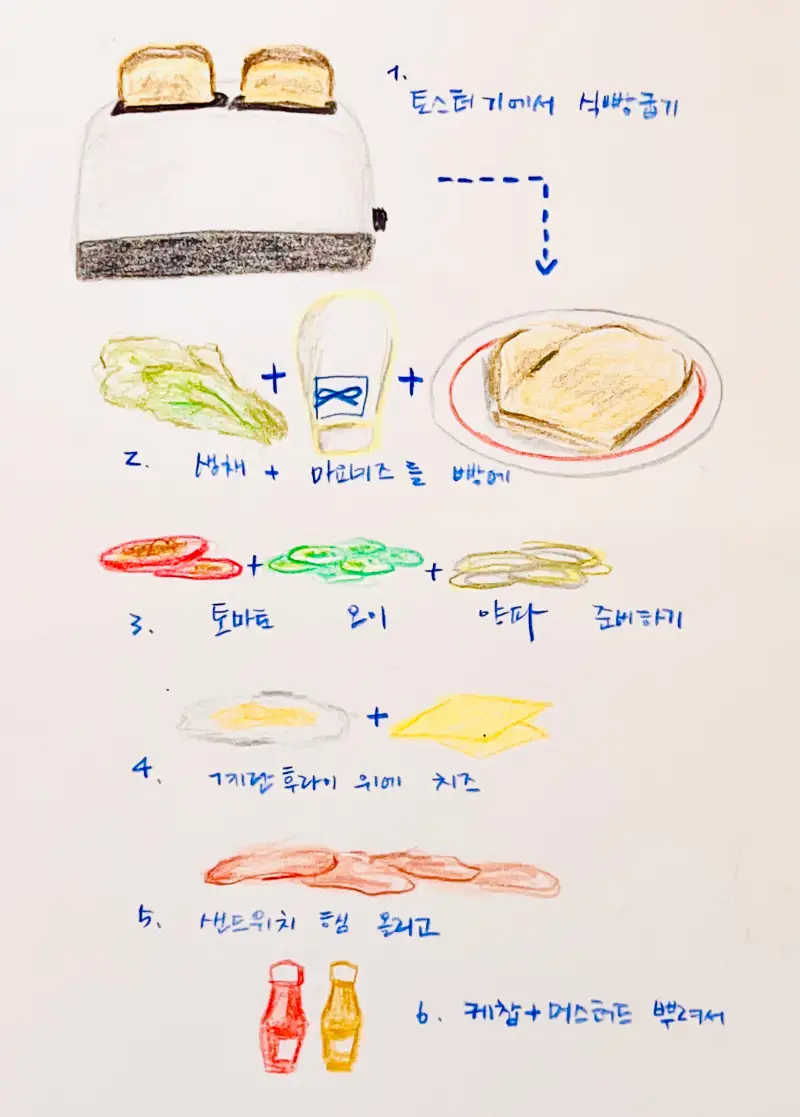 1.
토스터기에서 식빵굽기
2. 생채 + 마요네즈를 빵에
3. 토마토 오이 양파 준비하기
4. 계란후라이 위에 치즈
5. 샌드위치 햄 올리고
6. 케찹+머스터드 뿌려서